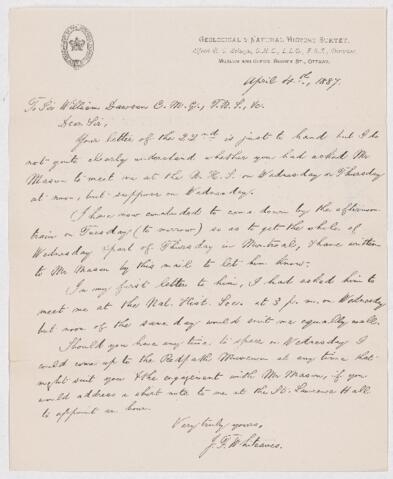 GEOLOGICAL & NATURAL HISTORY SURVEY.
Alfred R. C. Selwyn, C.M.G., L.L.D., F.R.S., Director.
MUSEUM AND OFFICE SUSSEX ST., OTTAWA.
April 4th, 1887.
To Sir William Dawson C. M. G., F.R.S., &c.
Dear Sir,
Your letter of the 22nd is just to hand but I do
not quite clearly understand whether you had asked Mr
Mason to meet me at the N. H. S. on Wednesday or Thursday
at noon, but suppose on Wednesday.
I have now concluded to come down by the afternoon
train on Tuesday (to morrow) so as to get the whole of
Wednesday & part of Thursday in Montreal, & have written
to Mr Mason by this mail to let him know.
In my first letter to him, I had asked him to
meet me at the Nat. Hist. Soc. at 3 p. m. on Wednesday
but noon of the same day would suit me equally well.
Should you have any time to spare on Wednesday I
could come up to the Redpath Museum at any time that
might suit you & the engagement with Mr Mason, if you
would address a short note to me at the St. Lawrence Hall
to appoint an hour.
Very truly yours,
J. F. Whiteaves.